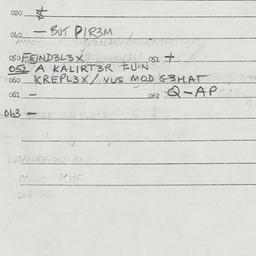 020 $
040 — BUT P/R3M
050 FEIND3L3X 051 +
052 A KALIRT3R FU·N
060 KREPL3X/VUS MOD G3HAT
061 — 062 Q-AP
063 —